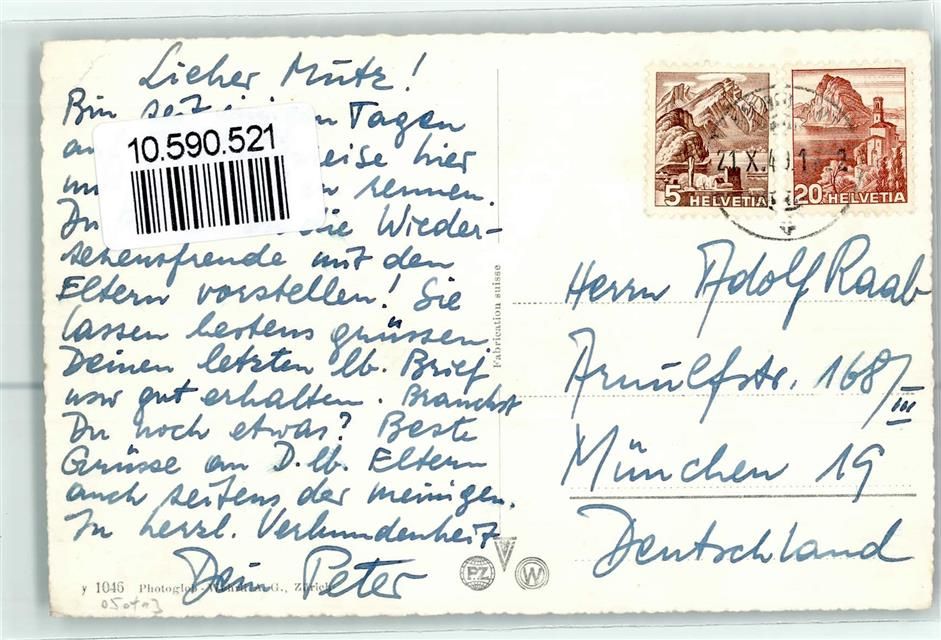 Lieber Mutz!
Bin seit Tagen
10.590.521
eise hier
rennen.
Du die Wieder-
sehensfreude mit den
Eltern vorstellen! Sie
lassen bestens grüssen
Deinen letzten lb. Brief
usw gut erhalten. Brauchst
Du noch etwas? Beste
Grüsse an D. lb. Eltern
auch seitens der meinigen.
In herzl. Verbundenheit
Dein Peter
y 1046 Photoglob A.G., Zürich
Fabrication suisse
PZ W
5 HELVETIA
20 HELVETIA
21.X.49.1
Herrn Adolf Raab
Arnulfstr. 168/III
München 19
Deutschland